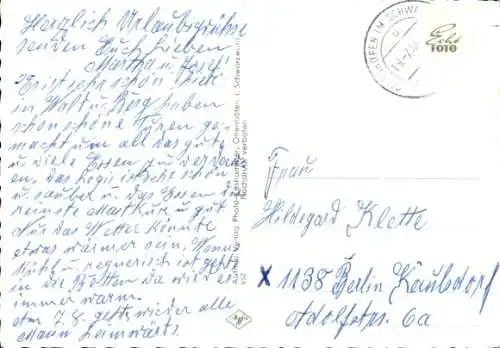 Herzlich Urlaubsgrüße
senden Euch Lieben
Martha u. Josef.
Es ist sehr schön hier
in Wald u. Berg haben
schon schöne Turen ge-
macht um all das gute
u. viele Essen zu verdau-
en. das Logis ist sehr schön
u. sauber u. das Essen die
reinste Mastkur u. gut.
Nur das Wetter könnte
etwas wärmer sein. Wenn
kühl u. regnerisch ist geht's
in die Betten da wird es
immer warm.
Am 7.8. geht's wieder alle
Mann heimwärts.
OTTENHÖFEN IM SCHWA
Echt
FOTO
Verlag Photo Ottenhöfen i. Schwarzwald
Nachdruck verboten
Agfa
Frau
Hildegard Klette
x 1138 Berlin Kaulsdorf
Adolfstr. 6a